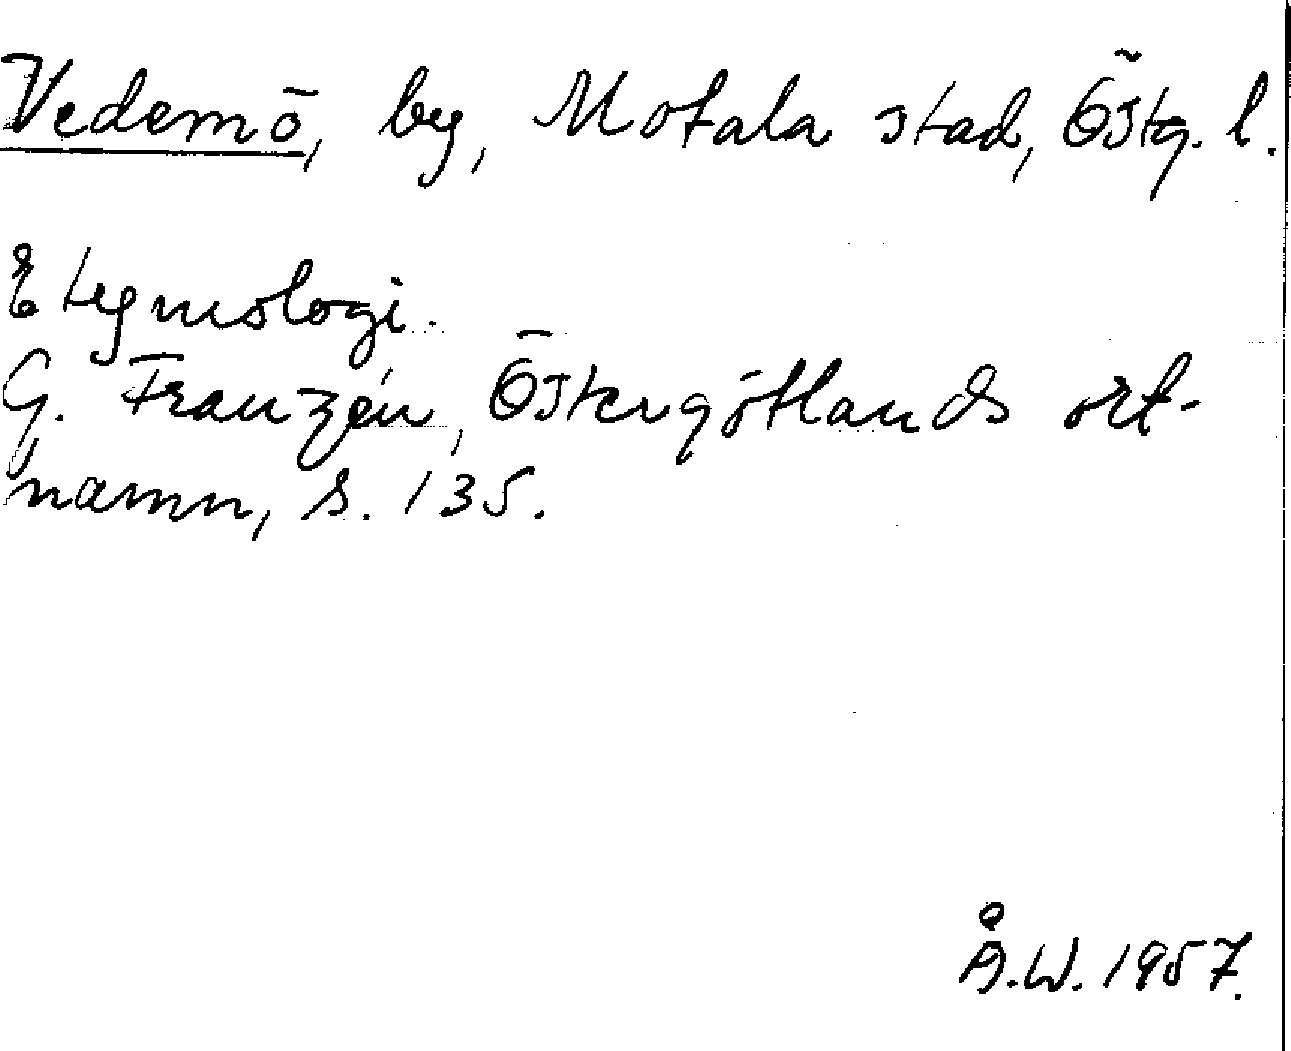 Vedemö, by, Motala stad, Östg. l.
Etymologi.
G. Franzén, Östergötlands ort-
namn, s. 135.
Å.W. 1957.